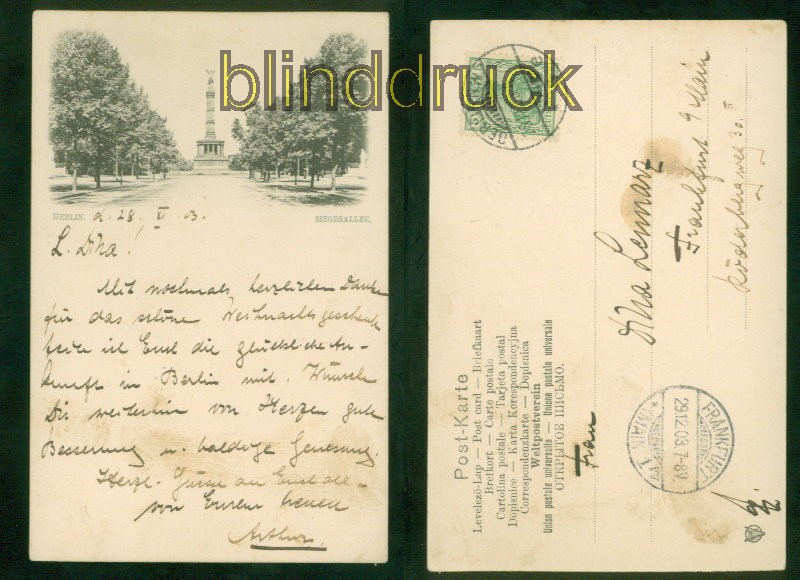 blinddruck
BERLIN. d. 28. XII 03.
SIEGESALLEE.
L. Dina!
Mit nochmals herzlichen Danke
für das schöne Weihnachtsgeschenk
teile ich Euch die glückliche An-
kunft in Berlin mit. Wünsche
Dir weiterhin von Herzen gute
Besserung u. baldige Genesung.
Herzl. Grüsse an Euch alle
von Eurem treuen
Arthur.
Post-Karte
Levelező-Lap — Post card — Briefkaart
Brefkort — Carte postale
Cartolina postale — Tarjeta postal
Dopisnice — Karta Korespondencyjna
Correspondenzkarte — Dopisnica
Weltpostverein
Union postale universelle — Unione postale universale
ОТКРЫТОЕ ПИСЬМО.
Frau
Dina Lennarz
Frankfurt a/Main
Röderbergweg 30 II
FRANKFURT
29.12.03. 7-8V.
(MAIN) 1